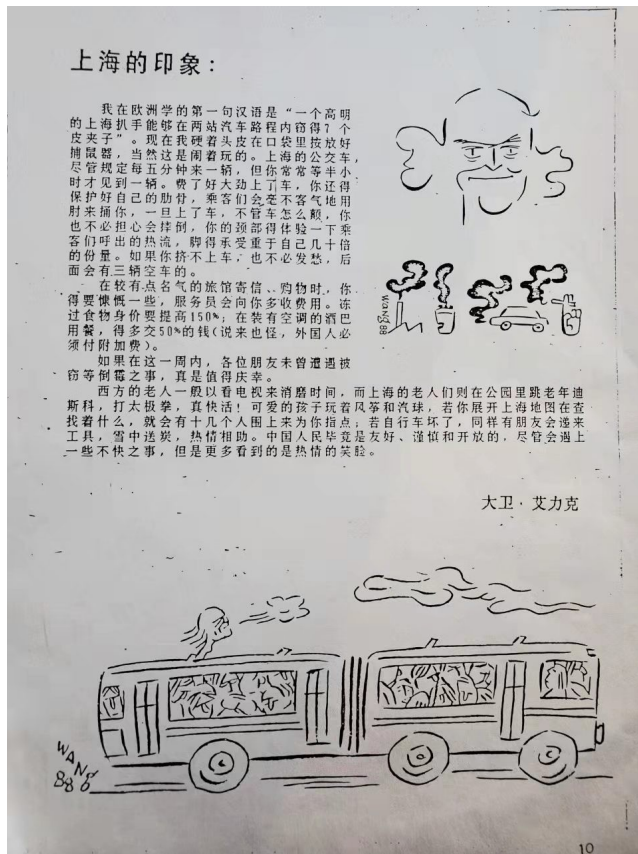 上海的印象：
我在欧洲学的第一句汉语是“一个高明
的上海扒手能够在两站汽车路程内窃得7个
皮夹子”。现在我硬着头皮在口袋里按放好
捕鼠器，当然这是闹着玩的。上海的公交车，
尽管规定每五分钟来一辆，但你常常等半小
时才见到一辆。费了好大劲上了车，你还得
保护好自己的肋骨，乘客们会毫不客气地用
肘来捅你，一旦上了车，不管车怎么颠，你
也不必担心会摔倒，你的颈部得体验一下乘
客们呼出的热流，脚得承受重于自己几十倍
的份量。如果你挤不上车，也不必发愁，后
面会有三辆空车的。
在较有点名气的旅馆寄信、购物时，你
得要慷慨一些，服务员会向你多收费用。冻
过食物身价要提高150%；在装有空调的酒巴
用餐，得多交50%的钱(说来也怪，外国人必
须付附加费)。
如果在这一周内，各位朋友未曾遭遇被
窃等倒霉之事，真是值得庆幸。
西方的老人一般以看电视来消磨时间，而上海的老人们则在公园里跳老年迪
斯科，打太极拳，真快活！可爱的孩子玩着风筝和汽球，若你展开上海地图在查
找着什么，就会有十几个人围上来为你指点；若自行车坏了，同样有朋友会递来
工具，雪中送炭，热情相助。中国人民毕竟是友好、谨慎和开放的，尽管会遇上
一些不快之事，但是更多看到的是热情的笑脸。
大卫·艾力克
WANG
88
WANG
88 6
10